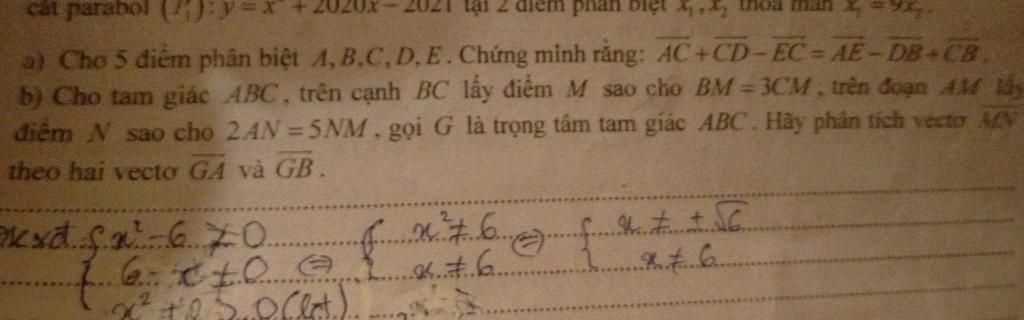 cắt parabol (P₁): y = x² + 2020x − 2021 tại 2 điểm phân biệt x₁, x₂ thỏa mãn x₁ = 9x₂.
a) Cho 5 điểm phân biệt A, B, C, D, E. Chứng minh rằng: \overline{AC} + \overline{CD} − \overline{EC} = \overline{AE} − \overline{DB} + \overline{CB}.
b) Cho tam giác ABC, trên cạnh BC lấy điểm M sao cho BM = 3CM, trên đoạn AM lấy
điểm N sao cho 2AN = 5NM, gọi G là trọng tâm tam giác ABC. Hãy phân tích vectơ \overline{MN}
theo hai vectơ \overline{GA} và \overline{GB}.
{ x² − 6 ≠ 0 { x² ≠ 6 ⇔ { x ≠ ±√6
6 − x ≠ 0 ⇔ x ≠ 6 x ≠ 6